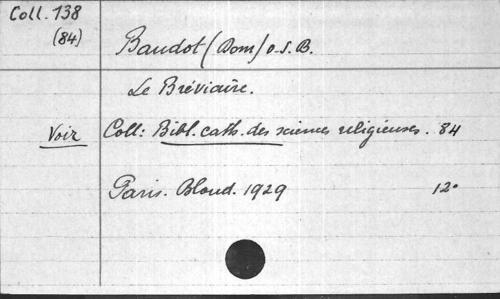 Coll. 138
(84)
Baudot (Dom) o.s.B.
Le Bréviaire.
Voir Coll: Bibl. cath. des sciences religieuses. 84
Paris. Bloud. 1929 12°